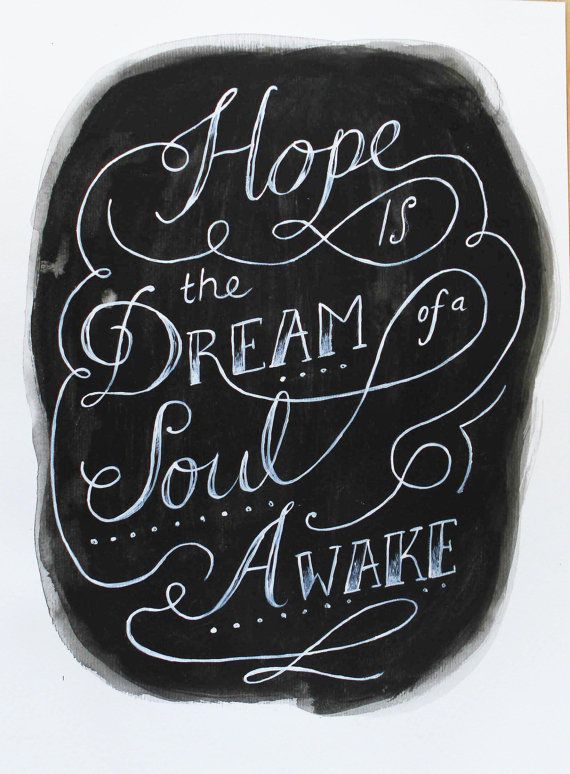 Hope
is
the
DREAM of a
Soul
AWAKE